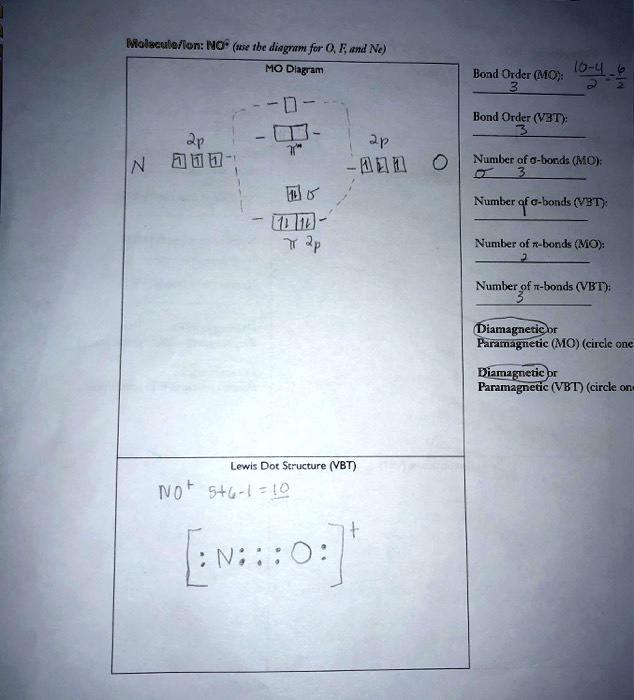 Molecule/Ion: NO⁺ (use the diagram for O, F, and Ne)
MO Diagram
2p
π*
2p
N
O
σ
π 2p
Bond Order (MO): 10-4/2 = 6/2
3
Bond Order (VBT):
3
Number of σ-bonds (MO):
σ 3
Number of σ-bonds (VBT):
Number of π-bonds (MO):
2
Number of π-bonds (VBT):
3
Diamagnetic or
Paramagnetic (MO) (circle one
Diamagnetic or
Paramagnetic (VBT) (circle on
Lewis Dot Structure (VBT)
NO⁺ 5+6-1=10
[:N:::O:]⁺